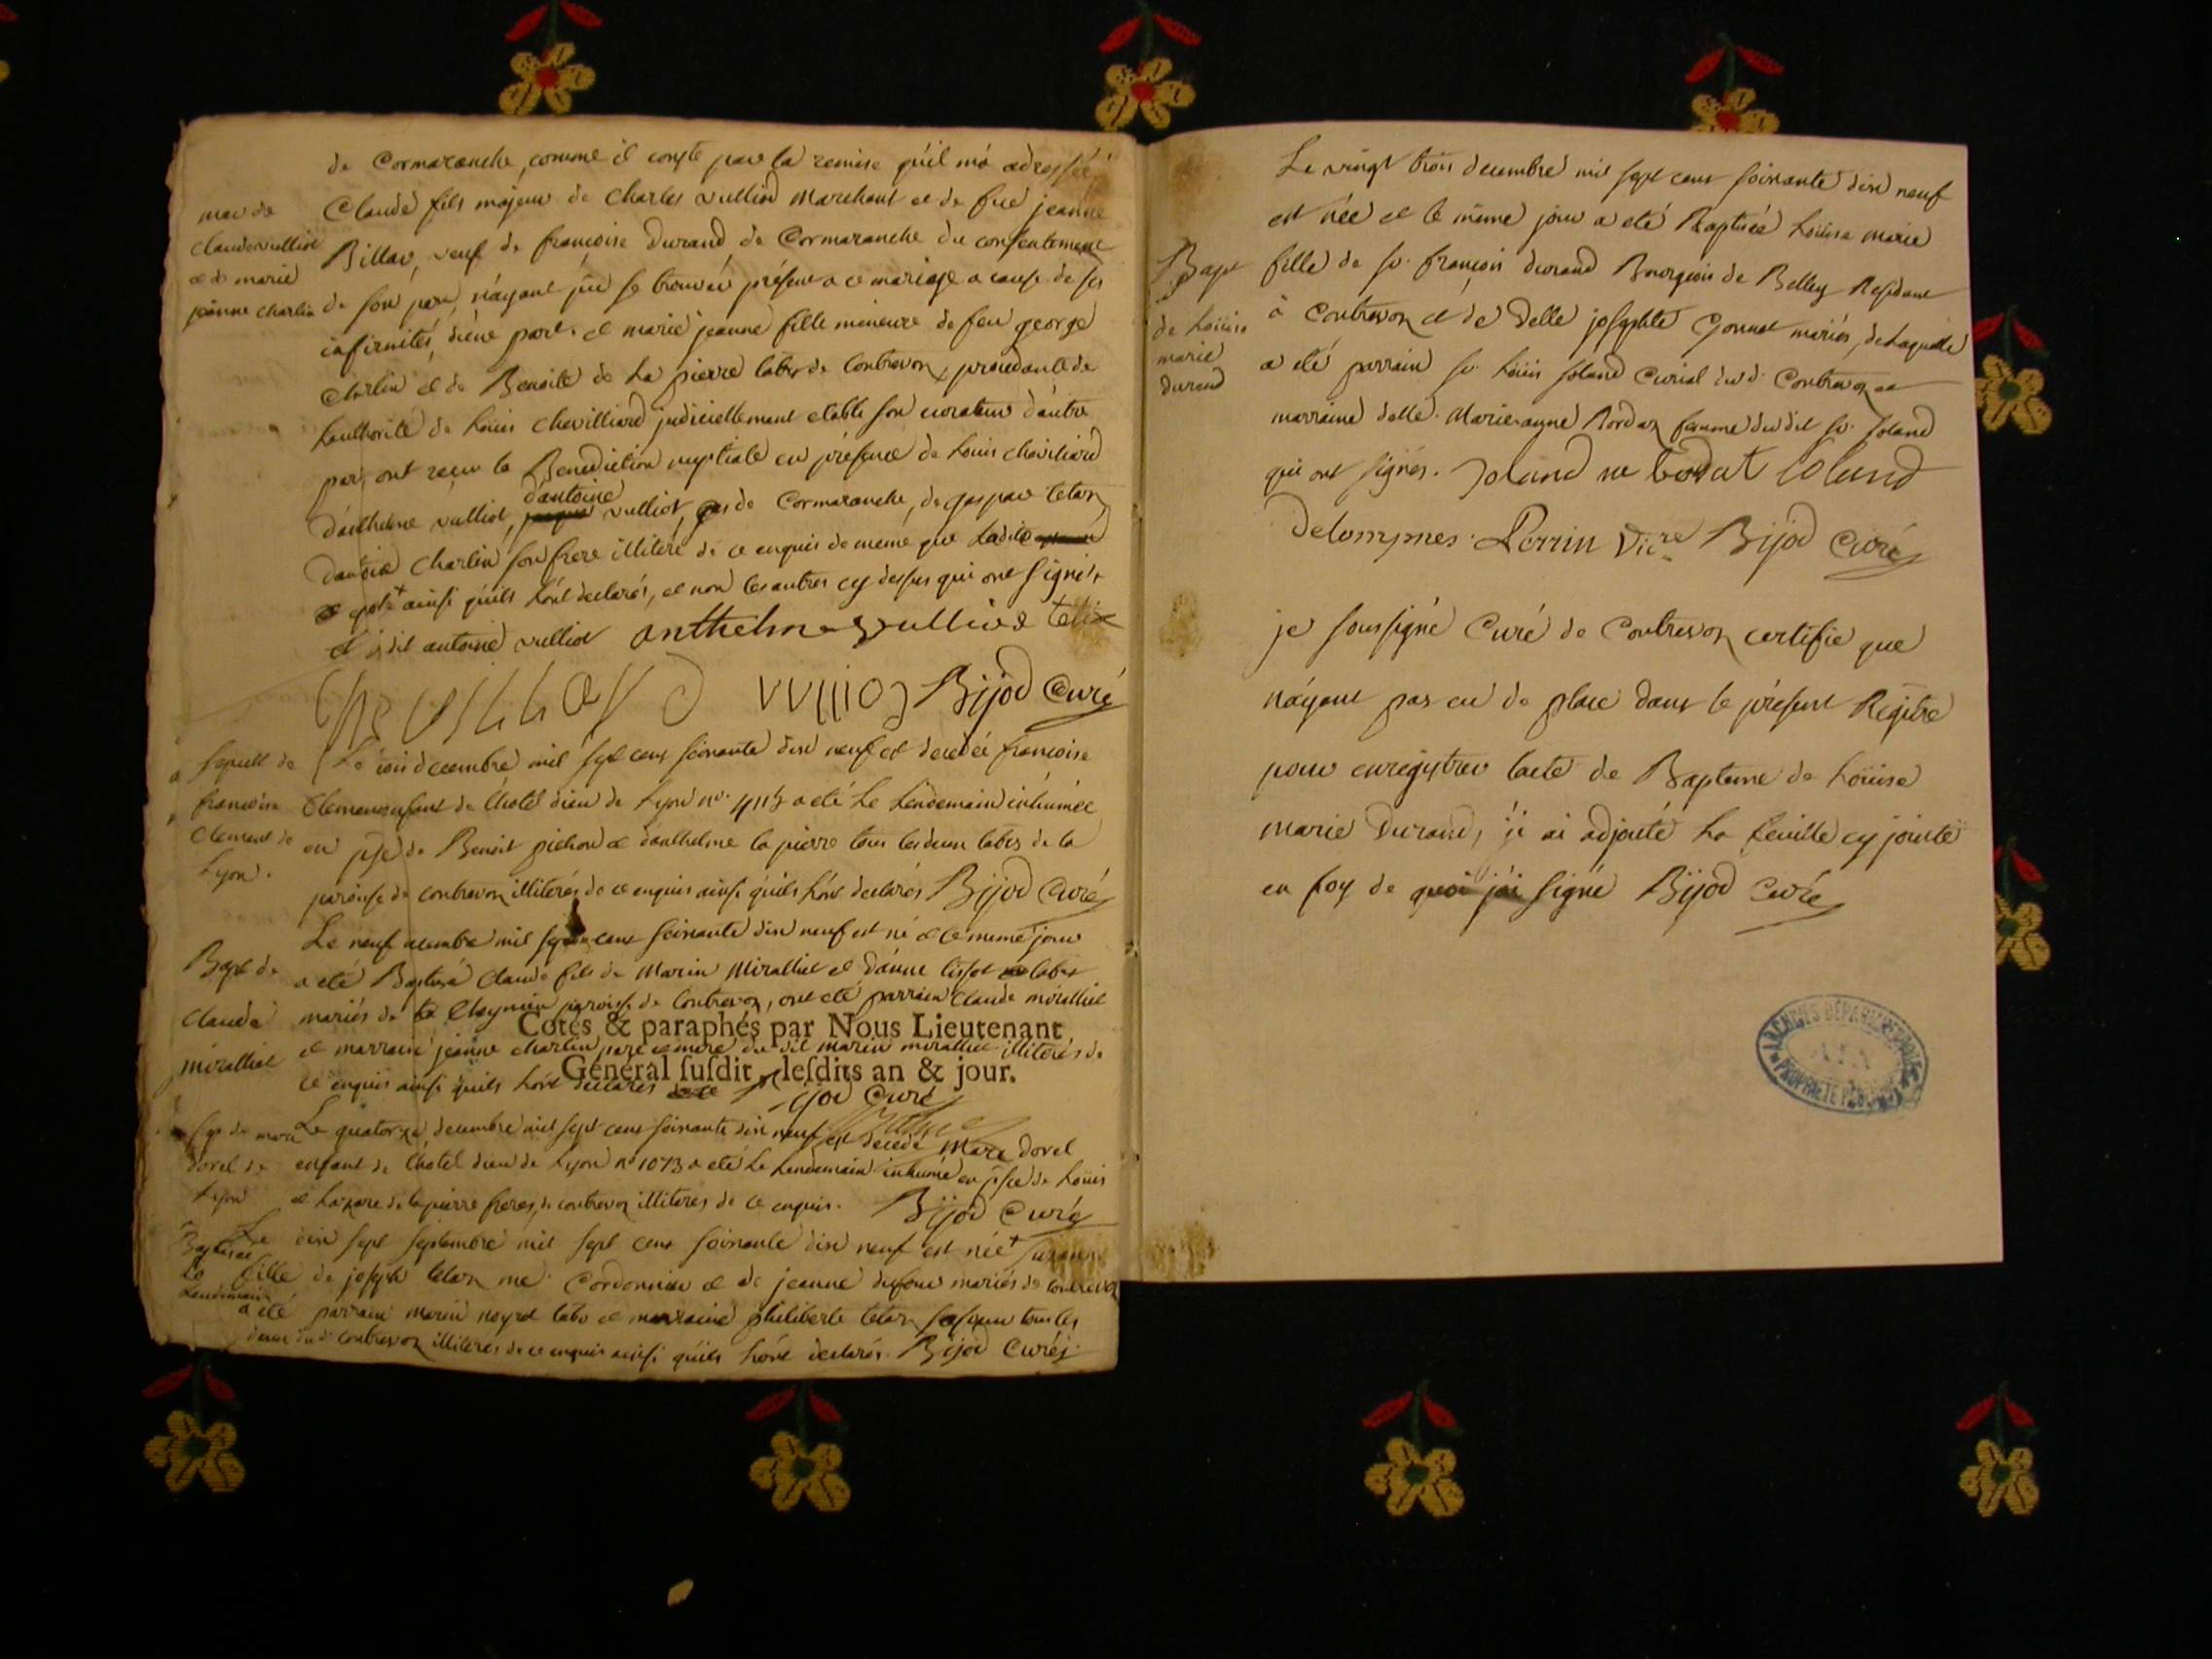 de Cormaranche, comme il conste par la remise qu'il m'a adressée
mar de
Claude vulliot
et de marie
jeanne charlin
Claude fils majeur de Charles vulliod Marchant et de fue jeanne
Billar, veuf de françoise Durand, de Cormaranche du consentement
de son pere, n'ayant pu se trouver présent a ce mariage a cause de ses
infirmités, d'une part. et marie jeanne fille mineure de feu george
Charlin et de Benoite de La pierre labrs de Contrevoz, procedante de
l'authorité de Louis Chevilliard judiciellement etabli son curateur d'autre
part, ont reçu la Benediction nuptiale en présence de Louis chevilliard
d'anthelme vulliot, d'antoine vulliot, de Cormaranche, de gaspar tetaz
Charlin son frere illiteré de ce enquis de meme que Ladite
ainsi qu'ils l'ont declarés, et non les autres cy dessus qui ont signés
dit antoine vulliot anthelme vulliod
Bijod Curé
sepult de
françoise
Clement de
Lyon.
Le trois decembre mil sept cent soixante dix neuf est decedée françoise
Clement enfant de l'hotel dieu de Lyon no. a eté Le Lendemain inhumée
en pnce de Benoit pichod et d'anthelme la pierre tous les deux labrs de la
paroisse de contrevoz illiterés de ce enquis ainsi qu'ils l'ont declarés Bijod Curé
Bapt de
Claude
miralliet
Le neuf decembre mil sept cent soixante dix neuf est né et le meme jour
a eté Baptisé Claude fils de Marin Miralliet et d'anne lissot labrs
mariés de paroisse de Contrevoz, ont eté parrain Claude miralliet
Cotés & paraphés par Nous Lieutenant
et marraine jeanne charlin pere et mere du dit marin miralliet illiterés de
Général susdit, lesdits an & jour.
ce enquis ainsi qu'ils l'ont declarés Bijod Curé
sep de marc
dorel de
Lyon
Le quatorze decembre mil sept cent soixante dix neuf est decedé Marc Dorel
enfant de l'hotel dieu de Lyon no 1073 a eté Le Lendemain inhumé en pnce de Louis
et Lazare de la pierre freres, de contrevoz illiterés de ce enquis. Bijod Curé
Baptisée
le
Lendemain
Le dix sept septembre mil sept cent soixante dix neuf est née
fille de joseph tetaz me. Cordonnier et de jeanne dufour mariés de contrevoz
a eté parrain marin neyret labr et marraine philiberte tetaz tous les
deux dud. contrevoz illiterés de ce enquis ainsi qu'ils l'ont declarés. Bijod Curé
Le vingt trois decembre mil sept cent soixante dix neuf
est née et le même jour a eté Baptisée Loüise marie
Bapt
de Loüise
marie
Durand
fille de sr. françois durand Bourgeois de Belley Residant
à Contrevoz et de Delle josephte Gonnet mariés, de Laquelle
a eté parrain sr. Loüis joland Curial dud. Contrevoz et
marraine delle. Marie-anne Bordaz femme dudit sr. joland
qui ont signés. joland ne bordat joland
Delompnes. Perrin Vicre Bijod Curé
je soussigné Curé de Contrevoz certifie que
n'ayant pas eu de place dans le présent Registre
pour enregistrer l'acte de Baptême de Loüise
marie Durand, j'ai adjouté La feuille cy jointe
en foy de quoi j'ai signé Bijod Curé
ARCHIVES DÉPARTEMENTALES
AIN
PROPRIÉTÉ PUBLIQUE